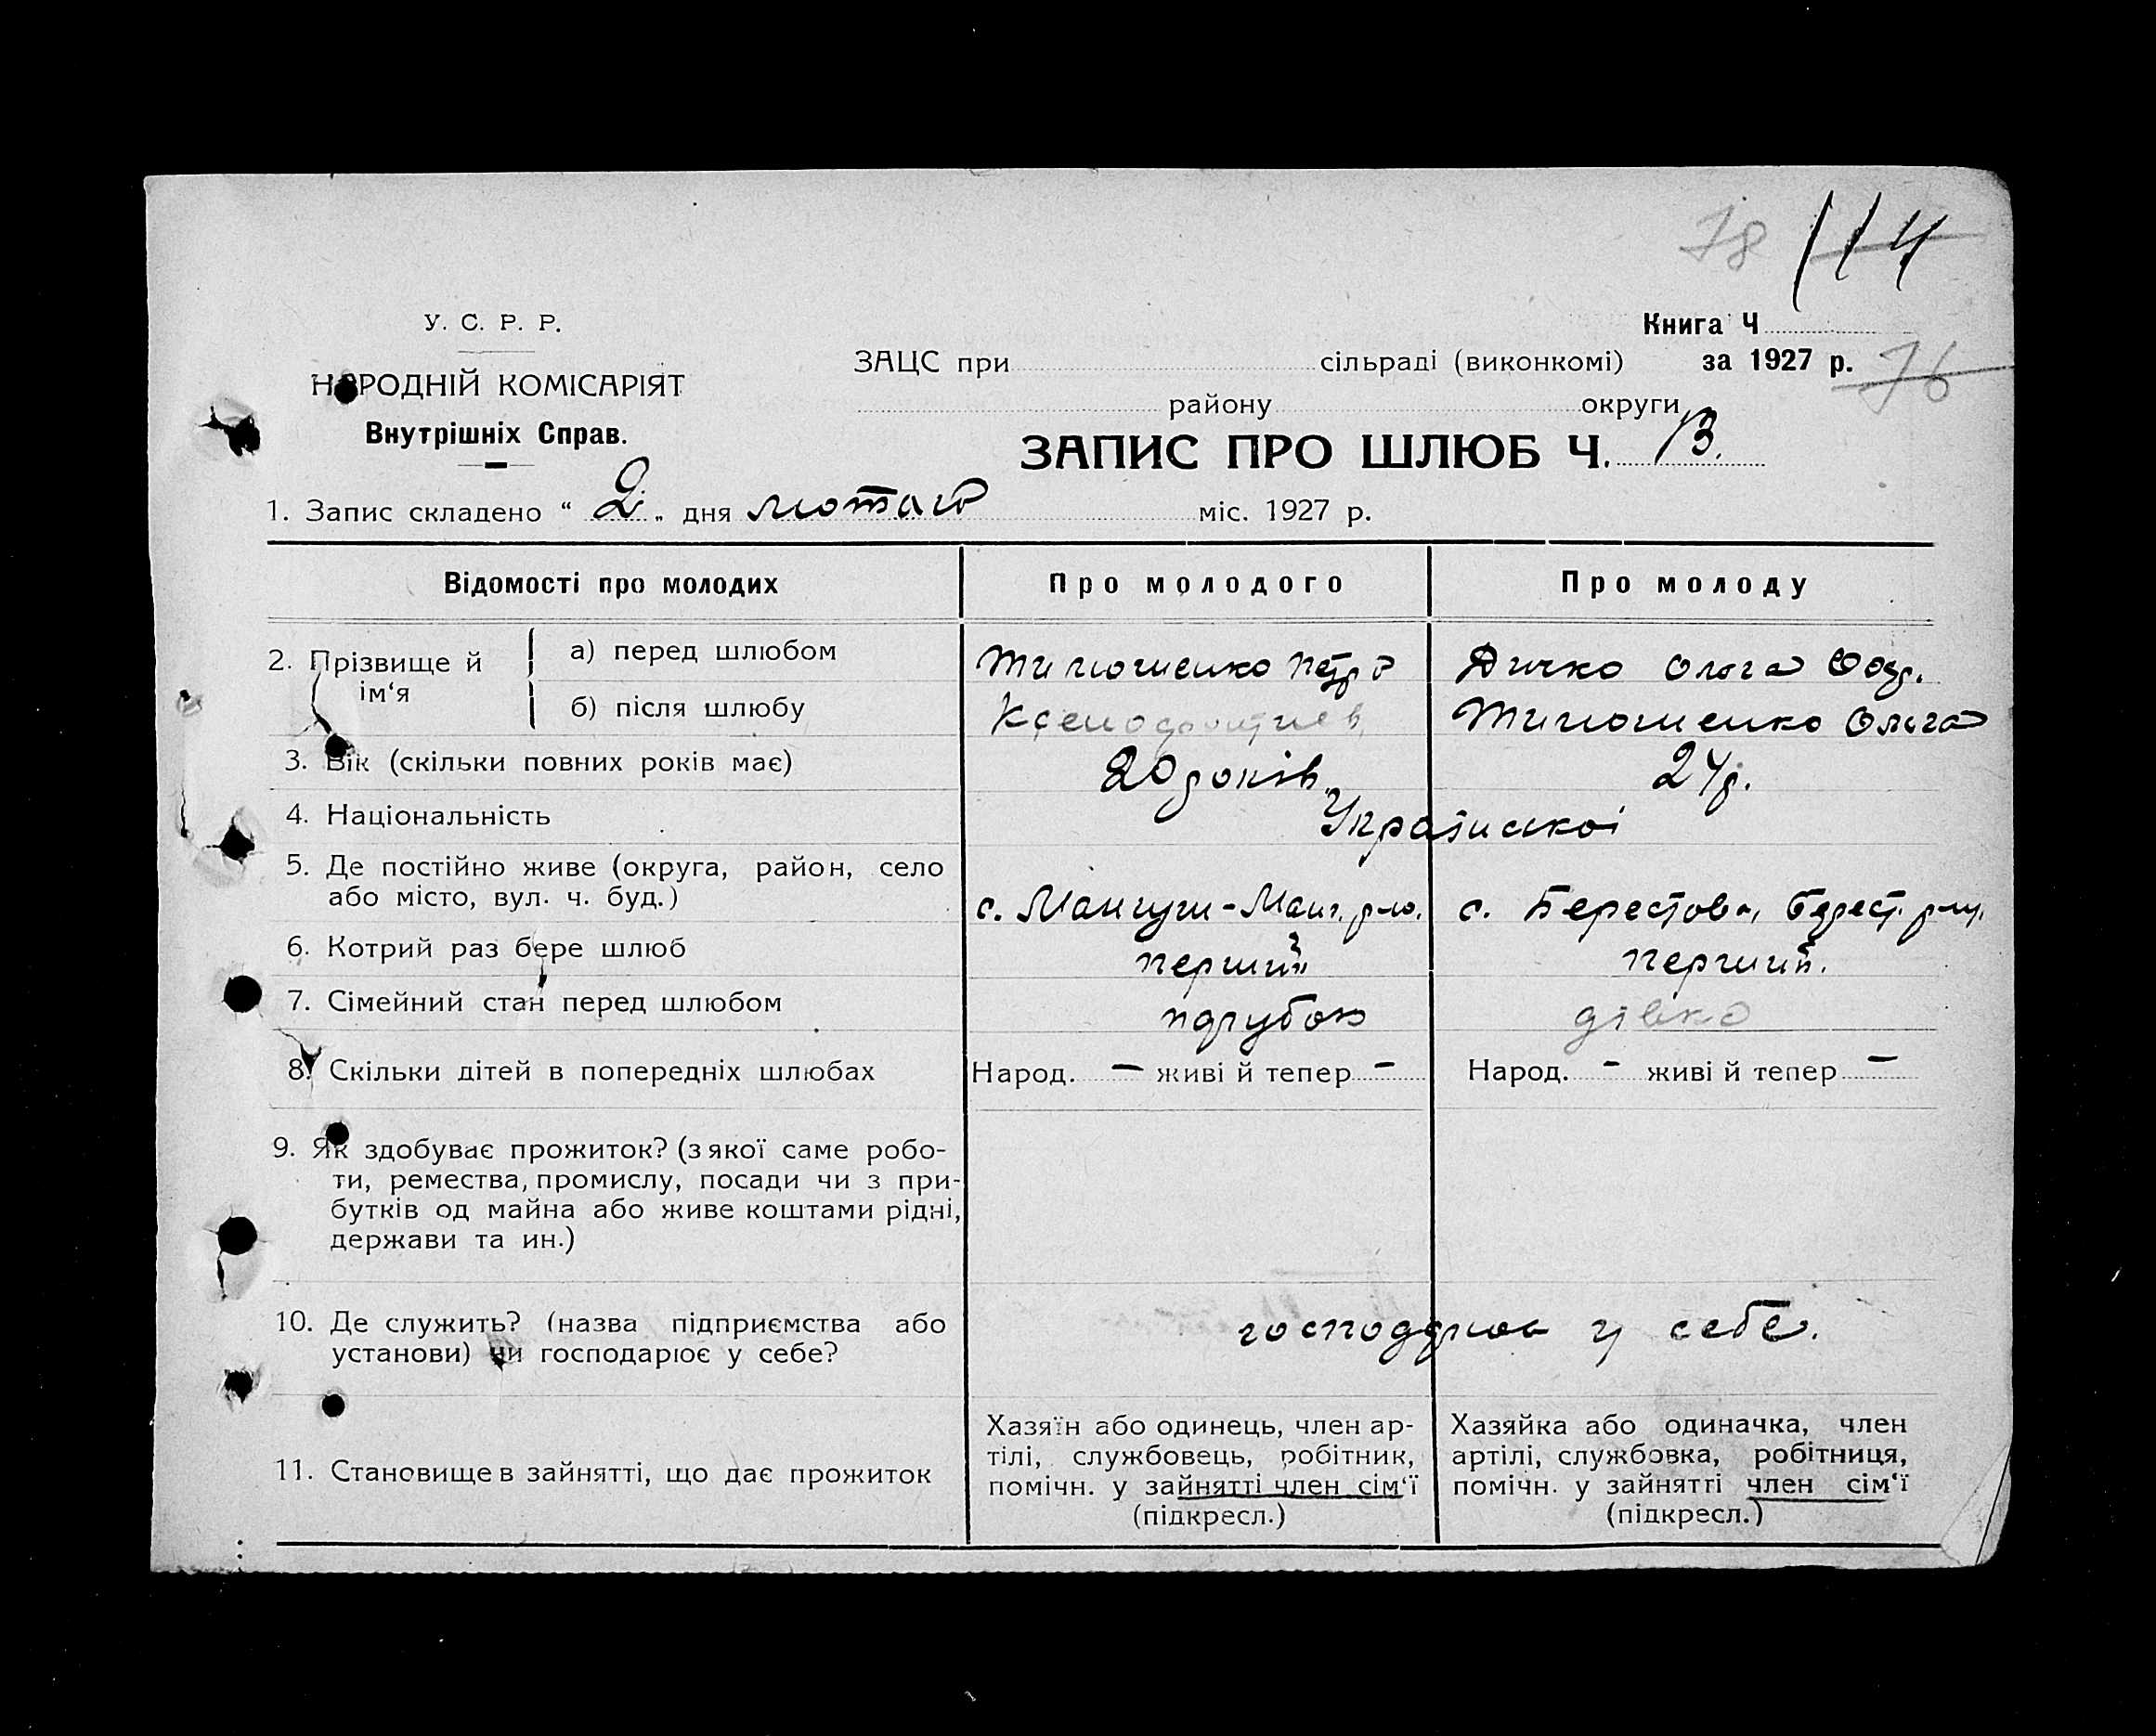 78 114
У. С. Р. Р.
НАРОДНІЙ КОМІСАРІЯТ
Внутрішніх Справ.
Книга Ч
ЗАЦС при сільраді (виконкомі) за 1927 р. 76
району округи
ЗАПИС ПРО ШЛЮБ Ч. 13.
1. Запис складено “ 2 „ дня лютого міс. 1927 р.
Відомості про молодих Про молодого Про молоду
2. Прізвище й ім‘я
а) перед шлюбом Тимошенко Петро Дичко Ольга
б) після шлюбу Тимошенко Ольга
3. Вік (скільки повних років має) 20 років 24 р.
4. Національність Української
5. Де постійно живе (округа, район, село
або місто, вул. ч. буд.) с. Мангуш-Манг. р-ю. с. Берестова, Берест. р-ну.
6. Котрий раз бере шлюб перший перший.
7. Сімейний стан перед шлюбом парубок дівка
8. Скільки дітей в попередніх шлюбах Народ. — живі й тепер — Народ. - живі й тепер —
9. Як здобуває прожиток? (з якої саме робо-
ти, ремества, промислу, посади чи з при-
бутків од майна або живе коштами рідні,
держави та ин.)
10. Де служить? (назва підприємства або
установи) чи господарює у себе? у себе.
11. Становище в зайнятті, що дає прожиток
Хазяїн або одинець, член ар-
тілі, службовець, робітник,
помічн. у зайнятті член сім‘ї
(підкресл.)
Хазяйка або одиначка, член
артілі, службовка, робітниця,
помічн. у зайнятті член сім‘ї
(підкресл.)